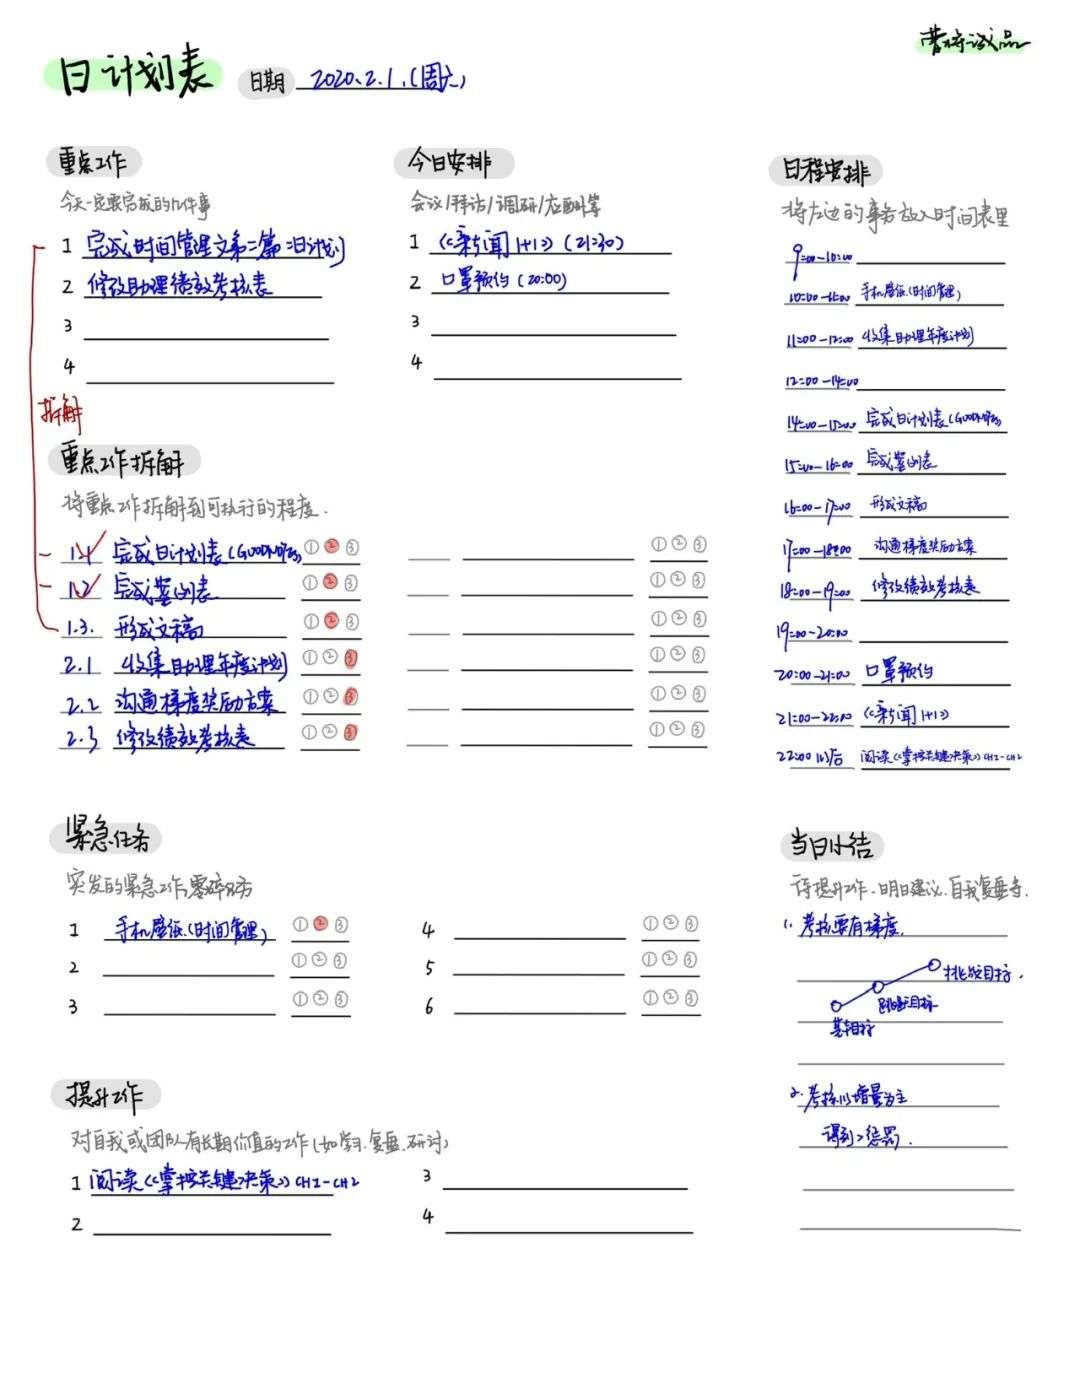 日计划表
日期 2020.2.1.(周六)
重点工作
今天一定要完成的几件事
1 完成时间管理文第二篇:日计划
2 修改助理绩效考核表
3
4
拆解
今日安排
会议/拜访/调研/应酬等
1 《新闻1+1》(21:30)
2 口罩预约(20:00)
3
4
重点工作拆解
将重点工作拆解到可执行的程度.
1.1 完成日计划表(GOODNOTES) ① ② ③
1.2 完成案例表 ① ② ③
1.3. 形成文稿 ① ② ③
2.1 收集助理年度计划 ① ② ③
2.2 沟通梯度奖励方案 ① ② ③
2.3 修改绩效考核表 ① ② ③
① ② ③
① ② ③
① ② ③
① ② ③
① ② ③
① ② ③
紧急任务
突发的紧急工作,零碎任务
1 手机壁纸.(时间管理) ① ② ③
2 ① ② ③
3 ① ② ③
4 ① ② ③
5 ① ② ③
6 ① ② ③
提升工作
对自我或团队有长期价值的工作(如学习.复盘.研讨)
1 阅读《掌控关键决策》CH1-CH2
2
3
4
日程安排
将左边的事务放入时间表里
9:00-10:00
10:00-11:00 手机壁纸.(时间管理)
11:00-12:00 收集助理年度计划
12:00-14:00
14:00-15:00 完成日计划表(GOODNOTES)
15:00-16:00 完成案例表
16:00-17:00 形成文稿
17:00-18:00 沟通梯度奖励方案
18:00-19:00 修改绩效考核表
19:00-20:00
20:00-21:00 口罩预约
21:00-22:00 《新闻1+1》
22:00以后 阅读《掌控关键决策》CH1-CH2
当日小结
待提升工作、明日建议.自我复盘等.
1. 考核要有梯度.
挑战目标.
基本目标
2. 考核以增量为主
得到>惩罚.